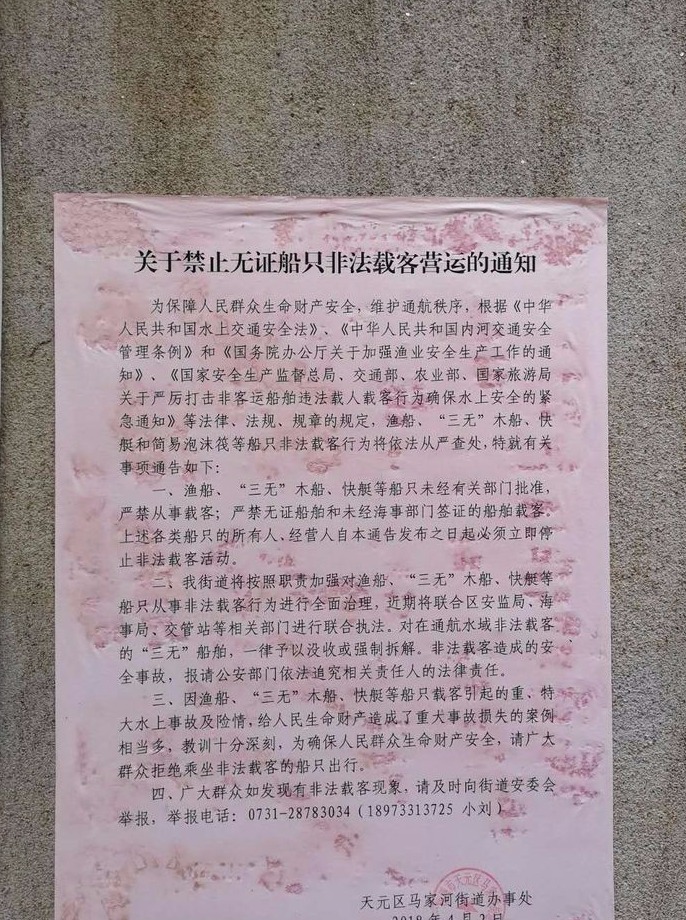 关于禁止无证船只非法载客营运的通知
为保障人民群众生命财产安全，维护通航秩序，根据《中华
人民共和国水上交通安全法》、《中华人民共和国内河交通安全
管理条例》和《国务院办公厅关于加强渔业安全生产工作的通
知》、《国家安全生产监督总局、交通部、农业部、国家旅游局
关于严厉打击非客运船舶违法载人载客行为确保水上安全的紧
急通知》等法律、法规、规章的规定，渔船、“三无”木船、快
艇和简易泡沫筏等船只非法载客行为将依法从严查处，特就有关
事项通告如下：
一、渔船、“三无”木船、快艇等船只未经有关部门批准，
严禁从事载客；严禁无证船舶和未经海事部门签证的船舶载客。
上述各类船只的所有人、经营人自本通告发布之日起必须立即停
止非法载客活动。
二、我街道将按照职责加强对渔船、“三无”木船、快艇等
船只从事非法载客行为进行全面治理，近期将联合区安监局、海
事局、交管站等相关部门进行联合执法。对在通航水域非法载客
的“三无”船舶，一律予以没收或强制拆解。非法载客造成的安
全事故，报请公安部门依法追究相关责任人的法律责任。
三、因渔船、“三无”木船、快艇等船只载客引起的重、特
大水上事故及险情，给人民生命财产造成了重大事故损失的案例
相当多，教训十分深刻，为确保人民群众生命财产安全，请广大
群众拒绝乘坐非法载客的船只出行。
四、广大群众如发现有非法载客现象，请及时向街道安委会
举报，举报电话：0731-28783034（18973313725 小刘）
天元区马家河街道办事处
2018年4月3日